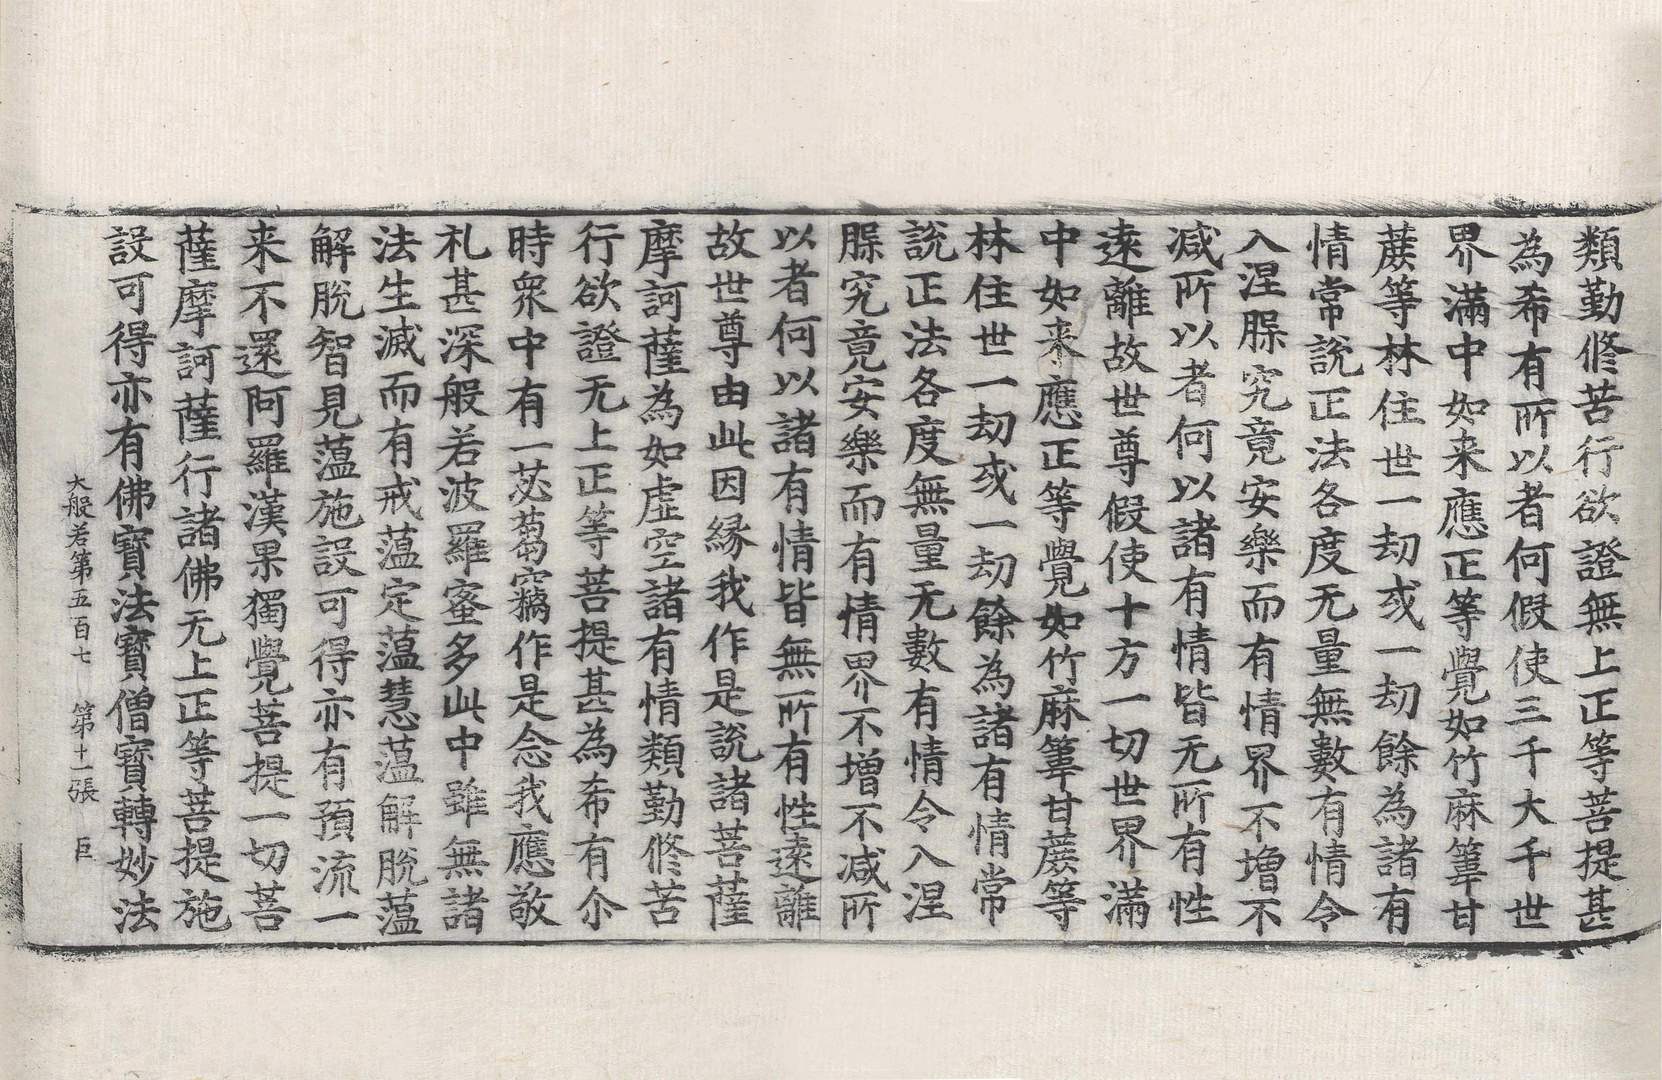 類勤修苦行欲證無上正等菩提甚
為希有所以者何假使三千大千世
界滿中如来應正等覺如竹麻葦甘
蔗等林住世一劫或一劫餘為諸有
情常說正法各度无量無數有情令
入涅槃究竟安樂而有情界不增不
減所以者何以諸有情皆无所有性
遠離故世尊假使十方一切世界滿
中如来應正等覺如竹麻葦甘蔗等
林住世一劫或一劫餘為諸有情常
說正法各度無量无數有情令入涅
槃究竟安樂而有情界不增不減所
以者何以諸有情皆無所有性遠離
故世尊由此因緣我作是說諸菩薩
摩訶薩為如虛空諸有情類勤修苦
行欲證无上正等菩提甚為希有尒
時衆中有一苾蒭竊作是念我應敬
礼甚深般若波羅蜜多此中雖無諸
法生滅而有戒蕰定蕰慧蕰解脫蕰
解脫智見蕰施設可得亦有預流一
来不還阿羅漢果獨覺菩提一切菩
薩摩訶薩行諸佛无上正等菩提施
設可得亦有佛寶法寶僧寶轉妙法
大般若第五百七 第十一張 巨